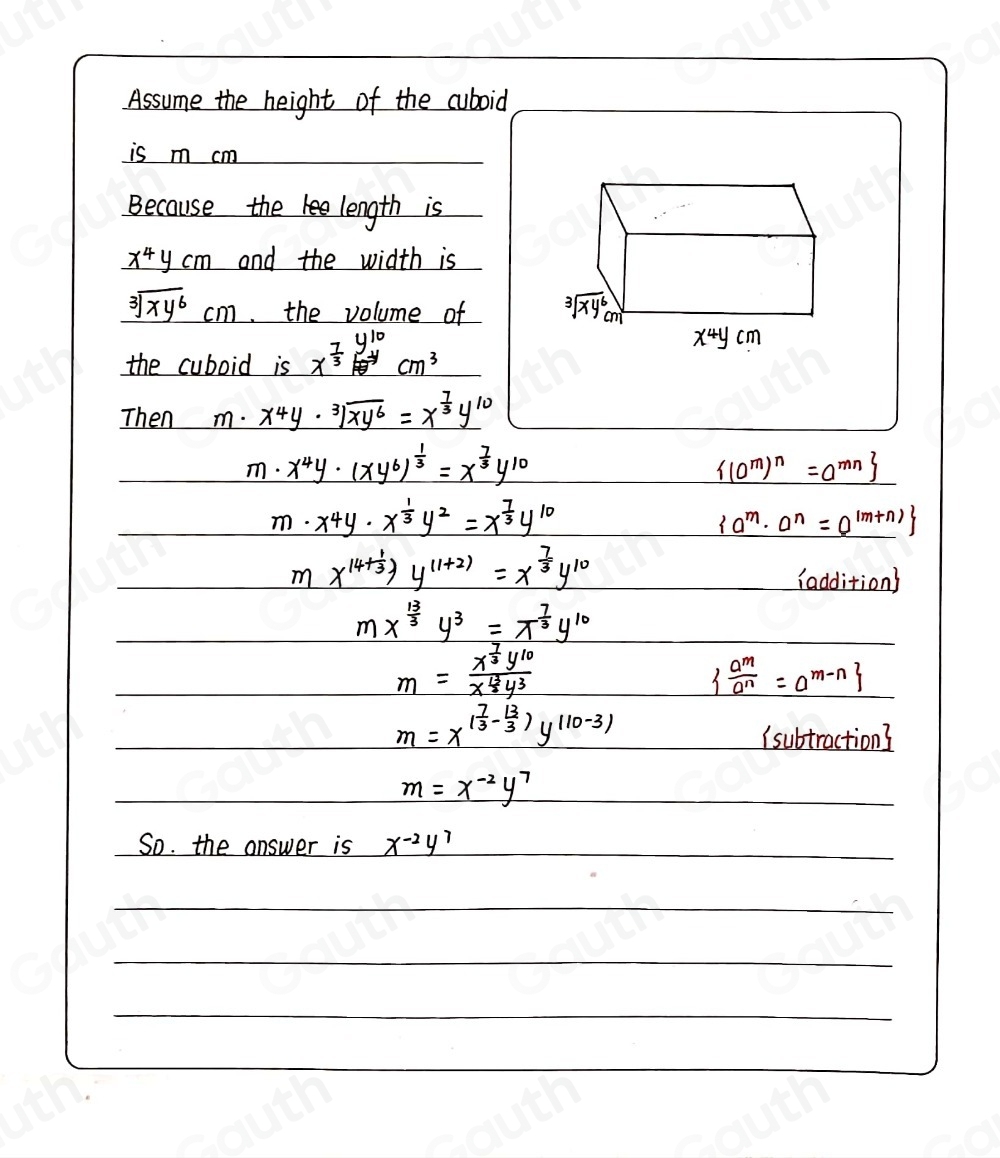 Assume the height of the cuboid
is m cm
Because the length is
x⁴y cm and the width is
∛(xy⁶) cm. the volume of
the cuboid is x^(7/3) y¹⁰ cm³
∛(xy⁶) cm
x⁴y cm
Then m · x⁴y · ∛(xy⁶) = x^(7/3) y¹⁰
m · x⁴y · (xy⁶)^(1/3) = x^(7/3) y¹⁰ {(a^m)^n = a^mn}
m · x⁴y · x^(1/3) y² = x^(7/3) y¹⁰ {a^m · a^n = a^(m+n)}
m x^(4+1/3) y^(1+2) = x^(7/3) y¹⁰ {addition}
m x^(13/3) y³ = x^(7/3) y¹⁰
m = x^(7/3) y¹⁰ / x^(13/3) y³ {a^m / a^n = a^(m-n)}
m = x^(7/3 - 13/3) y^(10-3) {subtraction}
m = x⁻² y⁷
So. the answer is x⁻² y⁷
Gauth